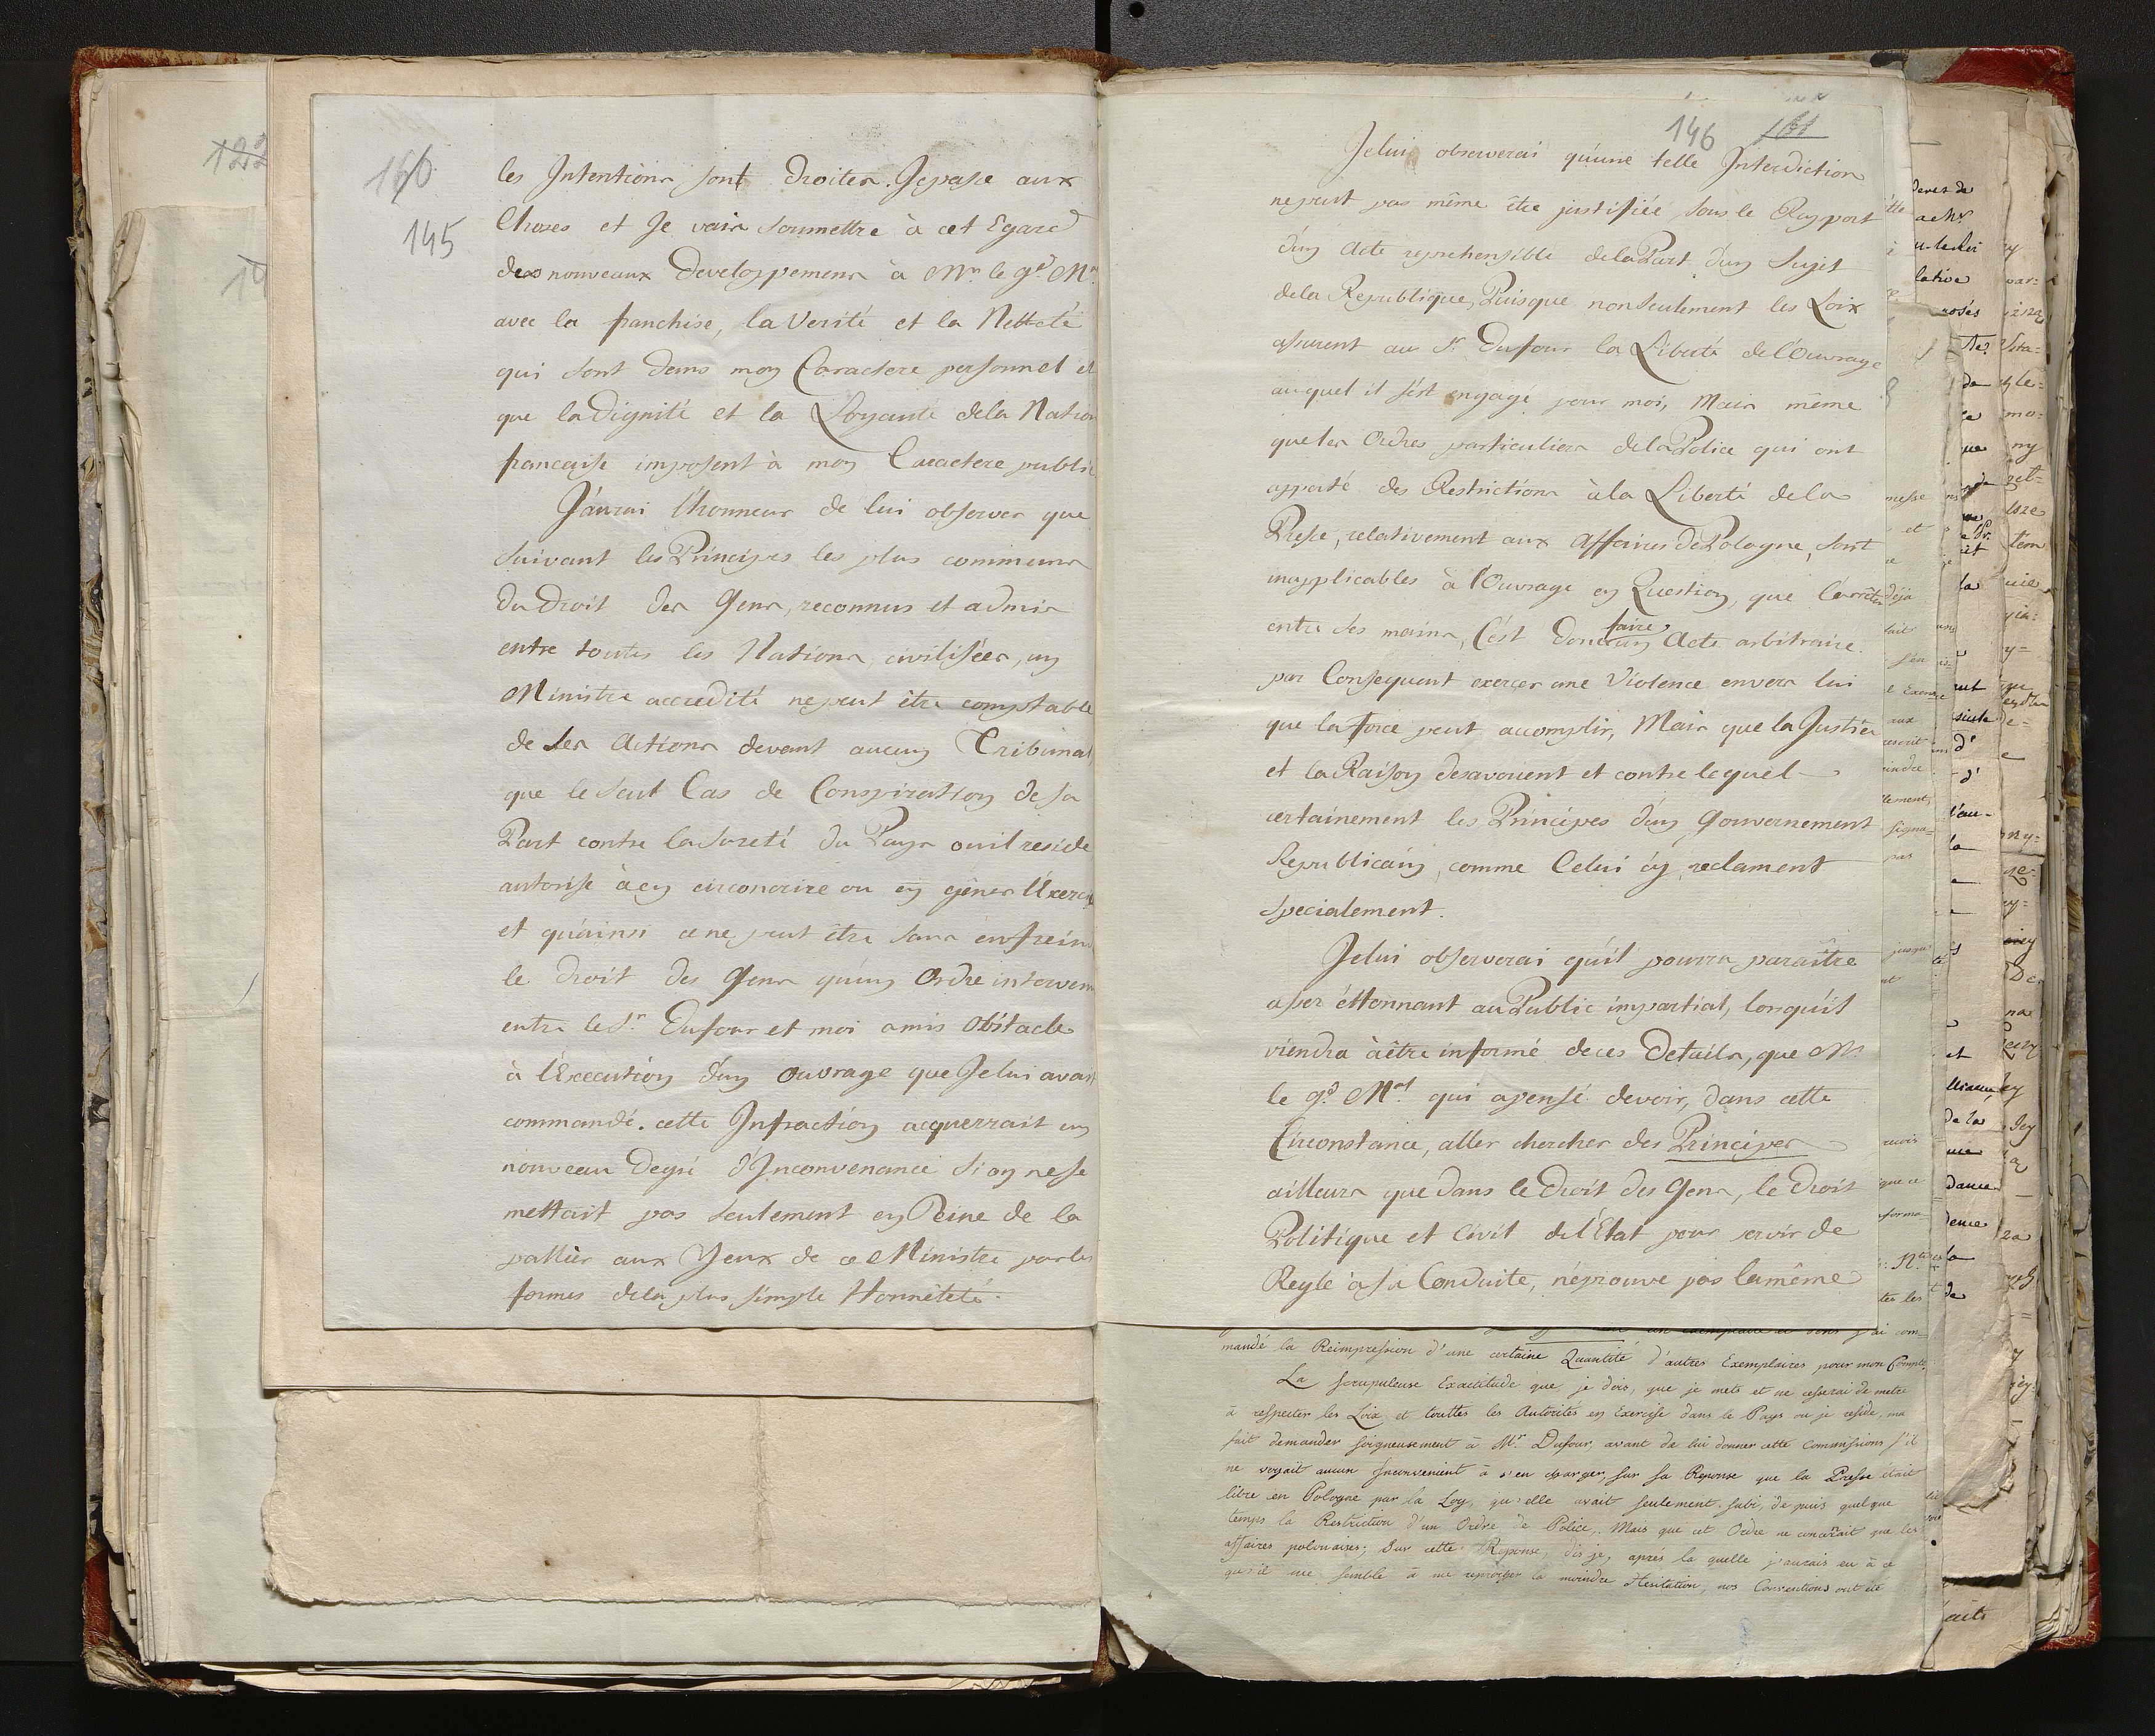 122
14
160
145
les Intentions sont droites. Je passe aux
Choses et Je vais soumettre à cet Egard
des nouveaux Developpemens à Mr. le gd. Ml.
avec la franchise, la Verité et la Netteté
qui sont dans mon Caractere personnel et
que la Dignité et la Loyauté de la Nation
francaise imposent à mon Caractere public
J'aurai l'honneur de lui observer que
suivant les Principes les plus communs
du Droit des Gens, reconnus et admis
entre toutes les Nations civilisées, un
Ministre accredité ne peut être comptable
de ses Actions devant aucun Tribunal
que le seul Cas de Conspiration de sa
Part contre la sureté du Pays ou il reside
autorise à en circonscrire ou en gêner l'Exercice
et qu'ainsi ce ne peut être sans enfreindre
le Droit des Gens qu'un Ordre intervenu
entre le Sr. Dufour et moi a mis Obstacle
à l'Execution d'un Ouvrage que Je lui avais
commandé. cette Infraction acquerrait un
nouveau Degré d'Inconvenance si on ne se
mettait pas seulement en Peine de la
pallier aux Yeux de ce Ministre par les
formes de la plus simple Honnêteté.
146 161
Je lui observerai qu'une telle Interdiction
ne peut pas même être justifiée sous le Rapport
d'un Acte reprehensible de la Part d'un Sujet
de la Republique, Puisque non seulement les Loix
assurent au Sr. Dufour la Liberté de l'Ouvrage
auquel il s'est engagé pour moi, Mais même
que les Ordres particuliers de la Police qui ont
apporté des Restrictions à la Liberté de la
Presse, relativement aux Affaires de Pologne, sont
inapplicables à l'Ouvrage en Question, que l'arrêter
entre ses mains, C'est donc faire un Acte arbitraire.
par Consequent exercer une Violence envers lui
que la force peut accomplir, Mais que la Justice
et la Raison desavouent et contre lequel
certainement les Principes d'un Gouvernement
Republicain, comme Celui cy, reclament
specialement.
Je lui observerai qu'il pourra paraître
assez éttonnant au Public impartial, lorsqu'il
viendra à être informé de ces Details, que Mr
le gd. Ml. qui a pensé devoir, dans cette
Circonstance, aller chercher des Principes
ailleurs que dans le Droit des Gens, le Droit
Politique et Civil de l'Etat pour servir de
Regle à sa Conduite, n'eprouve pas la même
mandé la Reimpression d'une certaine Quantité d'autres Exemplaires pour mon Compte.
La scrupuleuse Exactitude que je dois, que je mets et ne cesserai de metre
à respecter les Loix et touttes les Autorités en Exercise dans le Pays ou je reside, ma
fait demander soigneusement à Mr. Dufour, avant de lui donner cette Commissions s'il
ne voyait aucun Inconvenient à s'en charger, sur sa Reponse que la Presse était
libre en Pologne par la Loy, qu'elle avait seulement subi, de puis quelque
temps la Restriction d'un Ordre de Police, Mais que cet Ordre ne concernait que les
affaires polonaises; Sur cette Reponse, dis je, après la quelle j'aurais eu à ce
qu'il me semble à me reprocher la moindre Hesitation, nos Conventions ont été